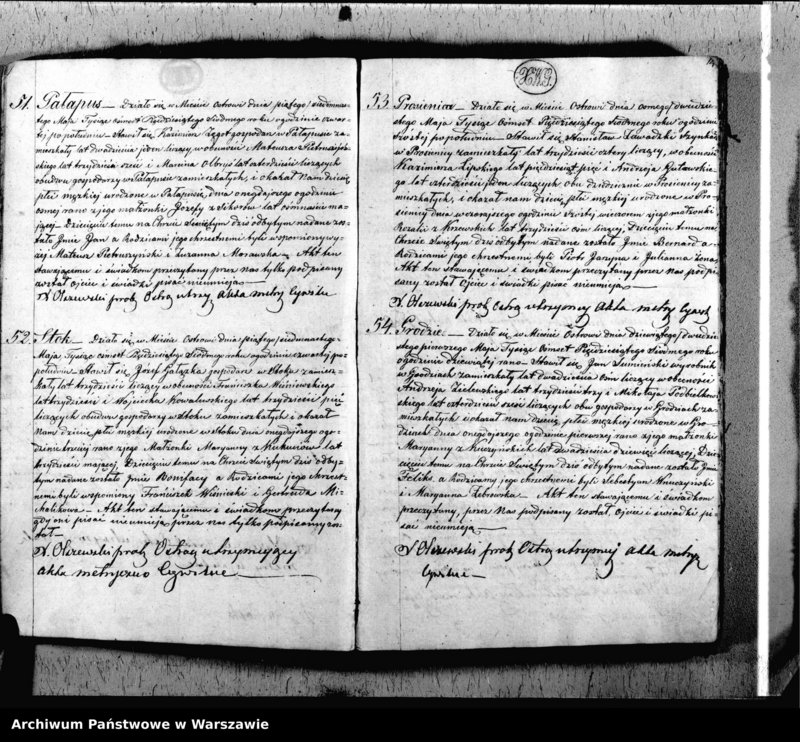 51. Pałapus — Działo się w Mieście Ostrowi dnia piątego/siedmnas-
tego Maja Tysiąc Ośmset Pięćdziesiątego Siódmego roku ogodzinie czwar-
tej popołudniu Stawił się Kazimierz gospodarz w Pałapusie za-
mieszkały lat dwadzieścia jeden liczący, w obecności Mateusza
lat trzydzieści sześć i Marcina lat czterdzieści liczących
obudwu gospodarzy w Pałapusie zamieszkałych, i okazał Nam dziecię
płci męzkiej urodzone w Pałapusie, dnia onegdajszego ogodzinie
osmej rano z jego małżonki Józefy z lat ośmnaście ma-
jącej — Dziecięciu temu na Chrzcie Świętym dziś odbytym nadane zos-
tało Jmie Jan a Rodzicami jego chrzestnemi byli wspomniony wy-
żej Mateusz Pietruszyński i Zuzanna Morawska — Akt ten
stawającemu i świadkom przeczytany przez nas tylko podpisany
został ojciec i świadki pisać nieumieją —
X. Olszewski prob. Ostro. utrzy. Akta metry Cywilne
52. Stok — Działo się w Mieście Ostrowi dnia piątego/siedmnastego
Maja Tysiąc Ośmset Pięćdziesiątego Siódmego roku ogodzinie czwartej po-
południu Stawił się Józef Gałązka gospodarz w Stoku zamiesz-
kały lat trzydzieści liczący w obecności Franciszka Wiśniewskiego
lat trzydzieści i Wojciecha Kowalewskiego lat trzydzieści pięć
liczących obudwu gospodarzy w Stoku zamieszkałych i okazał
Nam dziecię płci męzkiej urodzone w Stoku dnia onegdajszego ogo-
dzinie trzeciej rano z jego Małżonki Maryanny z Kukurów lat
trzydzieści mającej. Dziecięciu temu na Chrzcie Świętym dziś odby-
tym nadane zostało Jmie Bonifacy a Rodzicami jego chrzest-
nemi byli wspomniony Franciszek Wiśnieski i Gertruda Mi-
chalikowa — Akt ten stawającemu i świadkom przeczytany
gdy oni pisać nieumieją przez nas tylko podpisany zos-
tał —
X. Olszewski prob. Ostro. utrzymujący
akta metryczno Cywilne
53 Prosienica — Działo się w Mieście Ostrowi dnia osmego/dwudzie-
stego Maja Tysiąc Ośmset Pięćdziesiątego Siódmego roku ogodzinie
szóstej popołudniu — Stawił się Stanisław Zawadzki
w Prosienicy zamieszkały lat trzydzieści cztery liczący, w obecności
Kazimierza Lipskiego lat pięćdziesiąt pięć i Andrzeja
lat czterdzieści jeden liczących Obu w Prosienicy za-
mieszkałych, i okazał nam dziecię płci męzkiej urodzone w Pro-
sienicy dnia wczorajszego ogodzinie szóstej wieczorem z jego małżonki
Rozalii z lat trzydzieści ośm liczącej, Dziecięciu temu na
Chrzcie Świętym dziś odbytym nadane zostało Jmie Bernard a
Rodzicami jego chrzestnemi byli Piotr i Julianna żona
Akt ten stawającemu i świadkom przeczytany przez Nas podpi-
sany został Ojciec i świadki pisać nieumieją —
X. Olszewski prob. Ostro. utrzymujący Akta metry Cywil
54. Grodzie — Działo się w Mieście Ostrowi dnia dziewiątego/dwudzie-
stego pierwszego Maja Tysiąc Ośmset Pięćdziesiątego Siódmego roku
ogodzinie dziewiątej rano — Stawił się Jan Sumiński wyrobnik
w Grodziach zamieszkały lat dwadzieścia ośm liczący w obecności
Andrzeja Zielenskiego lat trzydzieści trzy i Mikołaja Podbielsk-
iego lat czterdzieści sześć liczących obu gospodarzy w Grodziach za-
mieszkałych i okazał nam dziecię płci męzkiej urodzone w Gro-
dziach dnia onegdajszego ogodzinie pierwszej rano z jego małżonki
Maryanny z lat dwadzieścia dziewięć liczącej, Dzie-
cięciu temu na Chrzcie Świętym dziś odbytym nadane zostało Jmie
Feliks, a Rodzicami jego Chrzestnemi byli Sebestyan
i Maryanna Dębrowska — Akt ten stawającemu i świadkom
przeczytany, przez Nas podpisany został, ojciec i świadki pi-
sać nieumieją —
X. Olszewski prob. Ostro. utrzymuj akta metry
Cywilne —
Archiwum Państwowe w Warszawie